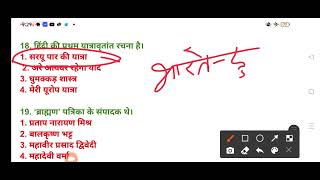 18. हिंदी की प्रथम यात्रावृतांत रचना है।
1. सरयू पार की यात्रा
2. अरे यायावर रहेगा याद
3. घुमक्कड़ शास्त्र
4. मेरी यूरोप यात्रा
भारतेन्दु
19. 'ब्राह्मण' पत्रिका के संपादक थे।
1. प्रताप नारायण मिश्र
2. बालकृष्ण भट्ट
3. महावीर प्रसाद द्विवेदी
4. महादेवी वर्मा